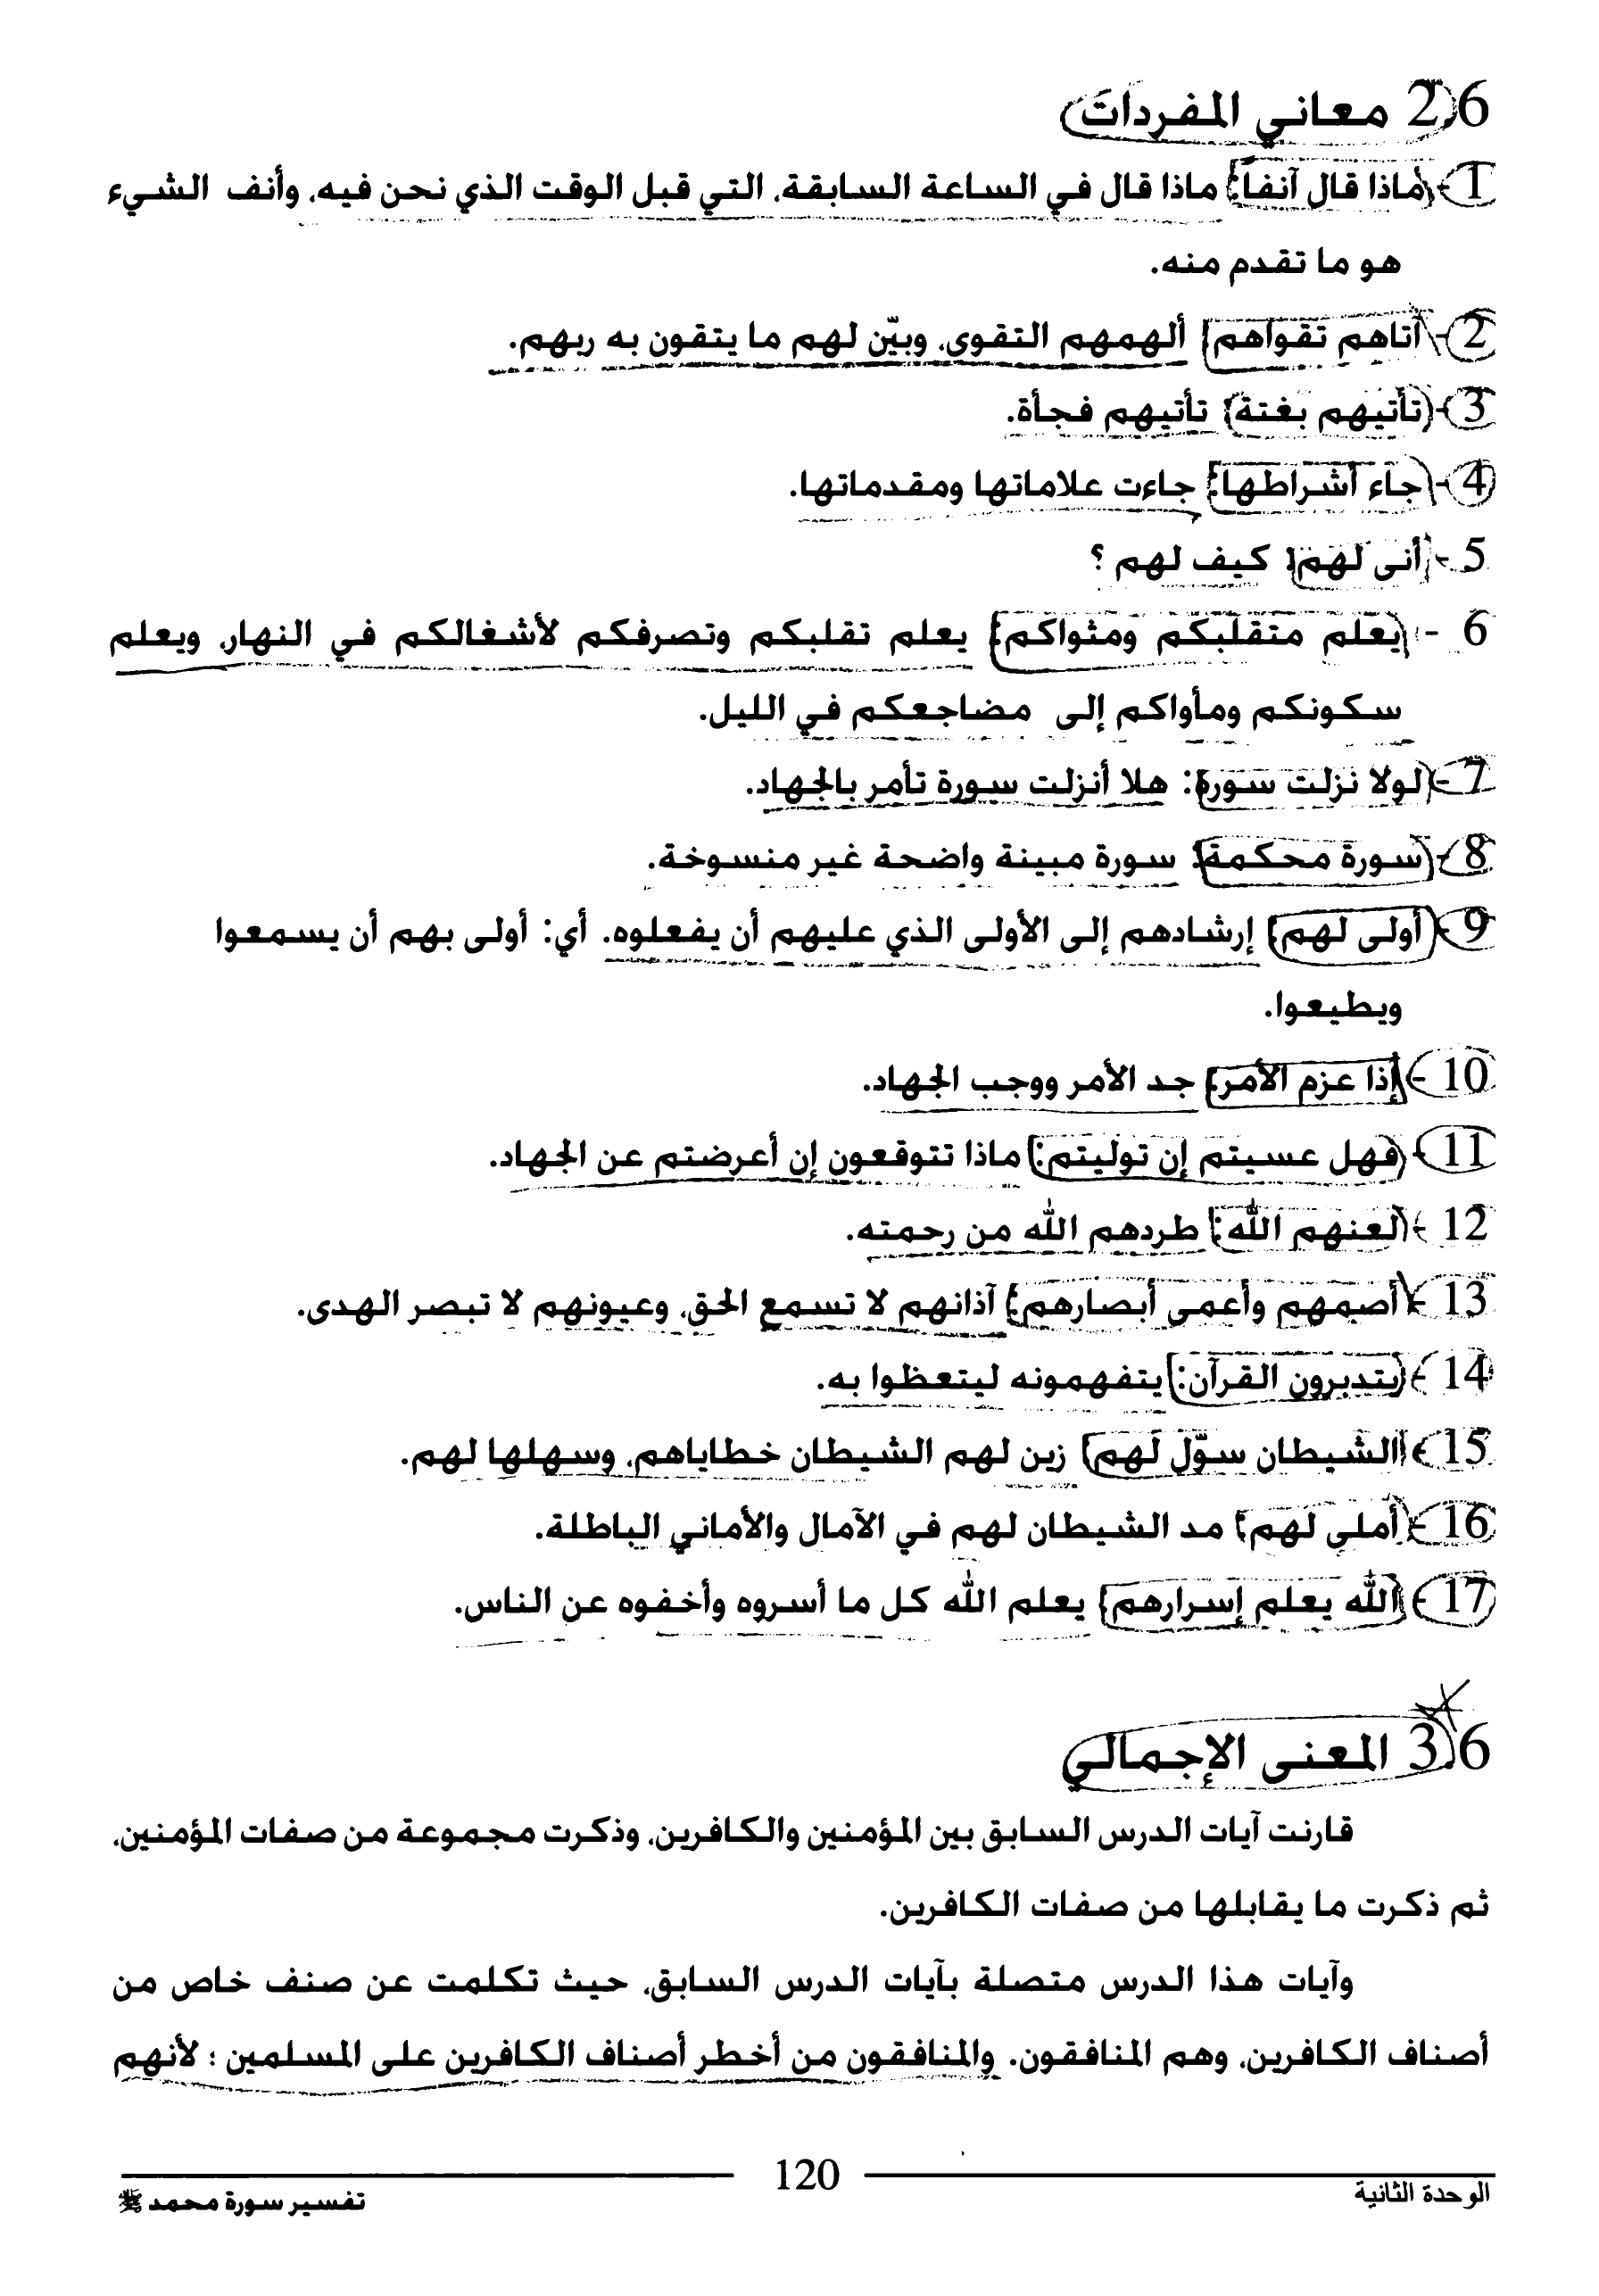 2.6 معاني المفردات
1- ماذا قال آنفا: ماذا قال في الساعة السابقة، التي قبل الوقت الذي نحن فيه، وأنف الشيء
هو ما تقدم منه.
2- آتاهم تقواهم: ألهمهم التقوى، وبيّن لهم ما يتقون به ربهم.
3- تأتيهم بغتة: تأتيهم فجأة.
4- جاء أشراطها: جاءت علاماتها ومقدماتها.
5- أنى لهم: كيف لهم ؟
6- يعلم متقلبكم ومثواكم: يعلم تقلبكم وتصرفكم لأشغالكم في النهار، ويعلم
سكونكم ومأواكم إلى مضاجعكم في الليل.
7- لولا نزلت سورة: هلا أنزلت سورة تأمر بالجهاد.
8- سورة محكمة: سورة مبينة واضحة غير منسوخة.
9- أولى لهم: إرشادهم إلى الأولى الذي عليهم أن يفعلوه. أي: أولى بهم أن يسمعوا
ويطيعوا.
10- إذا عزم الأمر: جد الأمر ووجب الجهاد.
11- فهل عسيتم إن توليتم: ماذا تتوقعون إن أعرضتم عن الجهاد.
12- لعنهم الله: طردهم الله من رحمته.
13- أصمهم وأعمى أبصارهم: آذانهم لا تسمع الحق، وعيونهم لا تبصر الهدى.
14- يتدبرون القرآن: يتفهمونه ليتعظوا به.
15- الشيطان سوّل لهم: زين لهم الشيطان خطاياهم، وسهلها لهم.
16- أملى لهم: مد الشيطان لهم في الآمال والأماني الباطلة.
17- الله يعلم إسرارهم: يعلم الله كل ما أسروه وأخفوه عن الناس.
3.6 المعنى الإجمالي
قارنت آيات الدرس السابق بين المؤمنين والكافرين، وذكرت مجموعة من صفات المؤمنين،
ثم ذكرت ما يقابلها من صفات الكافرين.
وآيات هذا الدرس متصلة بآيات الدرس السابق، حيث تكلمت عن صنف خاص من
أصناف الكافرين، وهم المنافقون. والمنافقون من أخطر أصناف الكافرين على المسلمين ؛ لأنهم
120
الوحدة الثانية
تفسير سورة محمد ﷺ